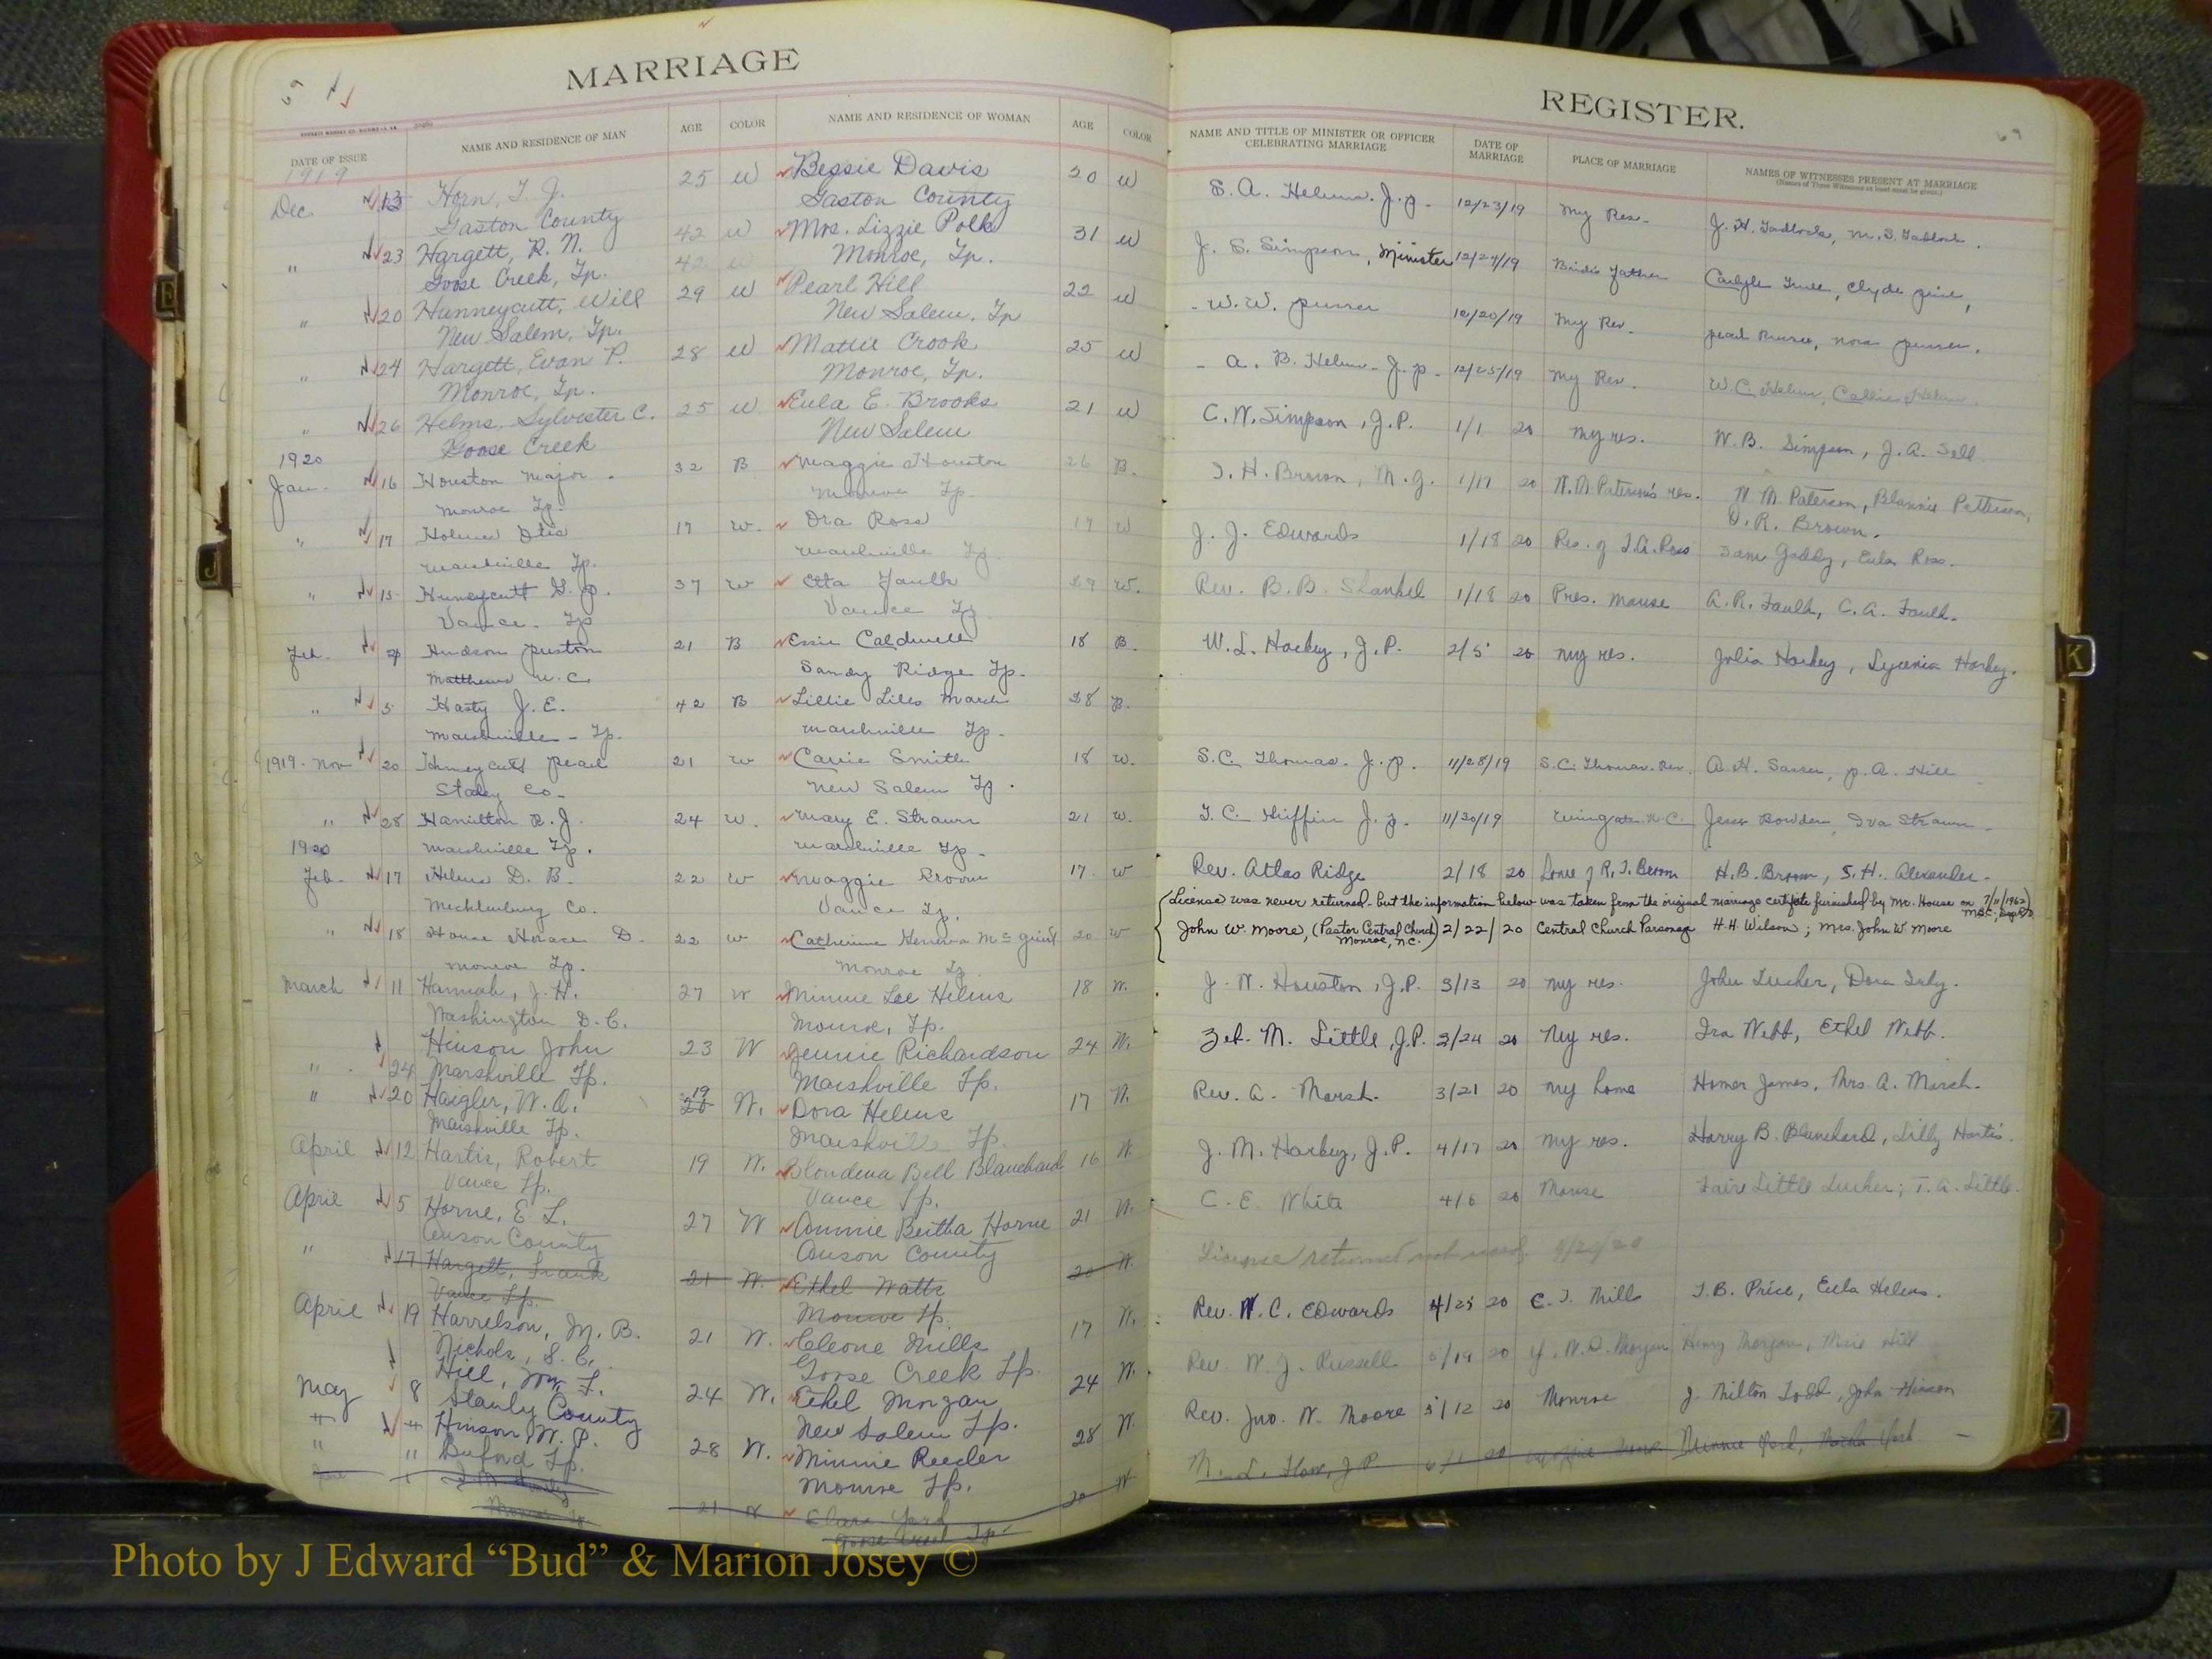 MARRIAGE
DATE OF ISSUE NAME AND RESIDENCE OF MAN AGE COLOR NAME AND RESIDENCE OF WOMAN AGE COLOR
1919
Dec. 13 Horn, T. J. 25 W Bessie Davis 20 W
Gaston County Gaston County
" 23 Hargett, R. N. 42 W Mrs. Lizzie Polk 31 W
Goose Creek, Tp. 42 W Monroe, Tp.
" 20 Hunneycutt, Will 29 W Pearl Hill 22 W
New Salem, Tp. New Salem, Tp
" 24 Hargett, Evan P. 28 W Mattie Crook 25 W
Monroe, Tp. Monroe, Tp.
" 26 Helms, Sylvester C. 25 W Eula E. Brooks 21 W
Goose Creek New Salem
1920
Jan. 16 Houston Major 32 B Maggie Houston 26 B.
Monroe Tp. Monroe Tp.
" 17 Holmes Otis 17 W. Ora Ross 17 W
Marshville Tp. Marshville Tp.
" 15 Huneycutt G. P. 37 W Etta Faulk 29 W.
Vance Tp Vance Tp
Feb. Hudson Preston 21 B Essie Caldwell 18 B.
Matthews N.C. Sandy Ridge Tp.
" 5 Hasty J. E. 42 B Lillie Liles Marsh 28 B.
Marshville Tp. Marshville Tp.
1919 Nov 20 Huneycutt Pearl 21 W Carrie Smith 18 W.
Stanly Co. New Salem Tp.
" 28 Hamilton R. J. 24 W. Mary E. Strawn 21 W.
1920 Marshville Tp. Marshville Tp.
Feb. 17 Helms D. B. 22 W Maggie Broom 17 W
Mecklenburg Co. Vance Tp.
" 18 House Horace D. 22 W Catherine Geneva 20 W
Monroe Tp. Monroe Tp
March 11 Hannah, J. H. 27 W Minnie Lee Helms 18 W.
Washington D.C. Monroe, Tp.
Hinson John 23 W Jennie Richardson 24 W.
" 24 Marshville Tp. Marshville Tp.
" 20 Haigler, W. A. 19 20 W. Dora Helms 17 W.
Marshville Tp. Marshville Tp.
April 12 Hartis, Robert 19 W. Blondena Bell Blanchard 16 W
Vance Tp. Vance Tp.
April 5 Horne, E L. 27 W Annie Bertha Horne 21 W.
Anson County Anson County
" 17 Hargett, Frank 21 W. Ethel Watts 20 W.
Vance Tp. Monroe Tp.
April 19 Harrelson, M. B. 21 W. Cleone Mills 17 W.
Nichols, S. C. Goose Creek Tp.
Hill, Wm. F. 24 W. Ethel Morgan 24 W.
May 8 Stanly County New Salem Tp.
" " Hinson W. P. 28 W. Minnie Reeder 28 W.
" " Buford Tp. Monroe Tp.
June 1 21 W Clara York 20 W
Monroe Tp Goose Creek Tp
REGISTER.
69
NAME AND TITLE OF MINISTER OR OFFICER CELEBRATING MARRIAGE DATE OF MARRIAGE PLACE OF MARRIAGE NAMES OF WITNESSES PRESENT AT MARRIAGE
(Names of Three Witnesses at least must be given.)
S. A. Helms. J.P. 12/23/19 My Res.
J. S. Simpson, Minister 12/24/19 Brides Father Carlyle Clyde
W. W. Purser 12/20/19 My Res. Pearl Purser, Nora Purser.
A. B. Helms J.P. 12/25/19 My Res. W.C. Helms, Callie Helms.
C. N. Simpson, J.P. 1/1 20 My res. W. B. Simpson, J. A. Sell
T. H. Brown, M.G. 1/17 20 N. M. Paterson's res. N. M. Paterson, Blannie Patterson,
R. Brown.
J. J. Edwards 1/18 20 Res. of J. A. Ross Sam Gaddy, Eula Ross.
Rev. B. B. Shankel 1/18 20 Pres. Manse A. R. Faulk, C. A. Faulk.
W. L. Harkey, J.P. 2/5 20 My res. Julia Harkey, Lycenia Harkey.
S. C. Thomas. J.P. 11/28/19 S. C. Thomas. Res. A. H. P. A. Hill
T. C. Griffin J.P. 11/30/19 Wingate. N.C. Jesse Bowden, Iva Strawn
Rev. Atlas Ridge 2/18 20 Home of R. T. Broom H. B. Broom, S. H. Alexander.
License was never returned - but the information below was taken from the original marriage certificate furnished by Mr. House on 7/11/1962
John W. Moore, (Pastor Central Church) 2/22/20 Central Church Parsonage H. H. Wilson; Mrs. John W. Moore
Monroe, N.C.
J. N. Houston, J.P. 3/13 20 My res. John Tucker, Dora
Zeb. M. Little, J.P. 3/24 20 My res. Ira Webb, Ethel Webb.
Rev. A. Marsh. 3/21 20 My home Homer James, Mrs A. Marsh.
J. M. Harkey, J.P. 4/17 20 My res. Harry B. Blanchard, Lilly Hartis.
C. E. White 4/6 20 Manse Faire Little Tucker; T. A. Little.
License returned not used. 4/20/20
Rev. W. C. Edwards 4/25 20 C. T. Mills T. B. Price, Eula Helms.
Rev. W. J. Russell 5/19 20 Morgan Henry Morgan, Hill
Rev. Jno. W. Moore 5/12 20 Monroe J. Milton Todd, John Hinson
M. L. Flow, J P 6/1 20 Minnie York, York
Photo by J Edward “Bud” & Marion Josey ©